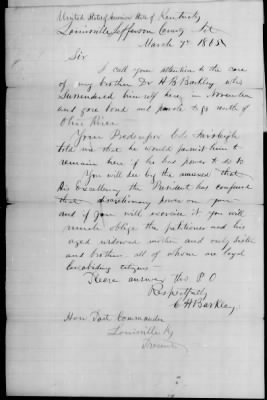 United States of America State of Kentucky
Louisville Jefferson County Sct
March 7th 1865
Sir
I call your attention to the case
of my brother Dr H B Barkley who
Surrendered himself here in November
and gave bond and parole to go north of
Ohio River
Your Predecessor Col Fairleigh
told me that he would permit him to
remain here if he had power to do so
You will see by the annexed that
His Excellency the President has confered
that disciplinary power on you
and if you will exercise it you will
much oblige the petitioner and his
aged widowed mother and only sister
and brother all of whom are loyal
law abiding citizens
Please answer thro P O
Respectfully
C H Barkley
Hon Post Commander
Louisville Ky
Present